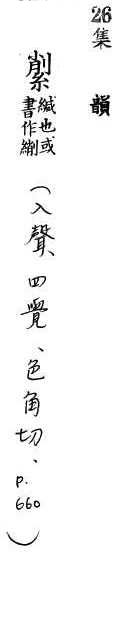 26 集 韻
緘也或
書作
（入聲、四覺、色角切、p. 660）